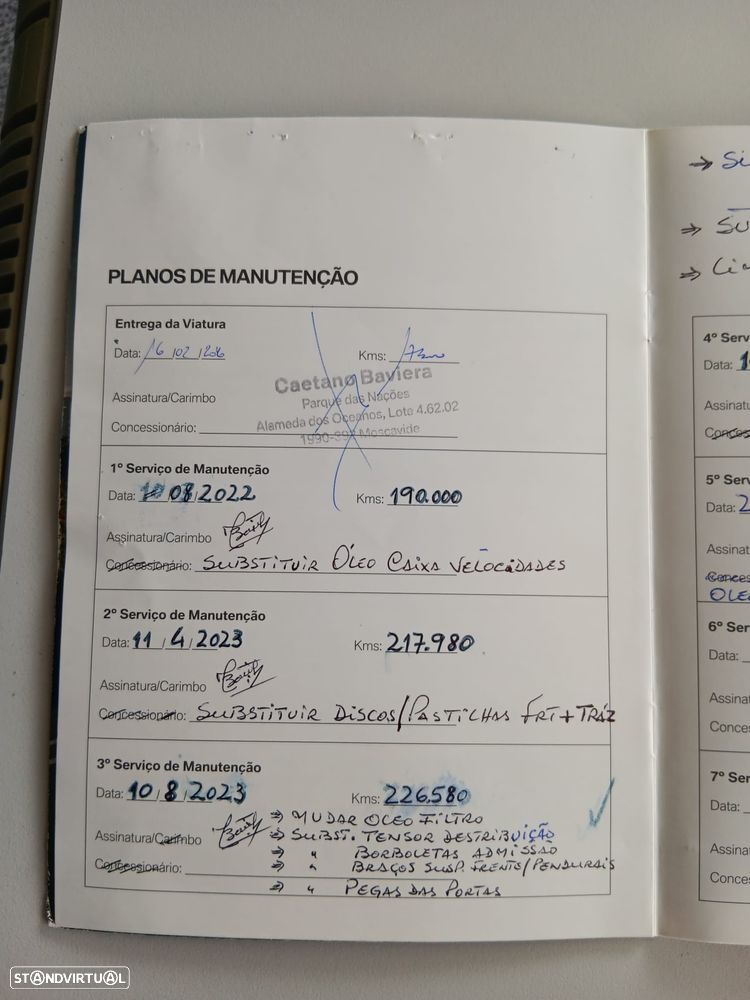 PLANOS DE MANUTENÇÃO
Entrega da Viatura
Data: 16 / 02 / 206 Kms:
Caetano Baviera
Parque das Nações
Assinatura/Carimbo
Alameda dos Oceanos, Lote 4.62.02
Concessionário:
Moscavide
1º Serviço de Manutenção
Data: 10 / 08 / 2022 Kms: 190.000
Assinatura/Carimbo
Concessionário: SUBSTITUIR ÓLEO CAIXA VELOCIDADES
2º Serviço de Manutenção
Data: 11 / 4 / 2023 Kms: 217.980
Assinatura/Carimbo
Concessionário: SUBSTITUIR DISCOS/PASTILHAS FRT + TRÁZ
3º Serviço de Manutenção
Data: 10 / 8 / 2023 Kms: 226.580
⇒ MUDAR OLEO FILTRO
Assinatura/Carimbo ⇒ SUBST. TENSOR DESTRIBUIÇÃO
⇒ " BORBOLETAS ADMISSÃO
Concessionário: ⇒ " BRAÇOS SUSP. FRENTE/PENDURAIS
⇒ " PEGAS DAS PORTAS
→ Si
⇒ SU
⇒
4º Serv
Data: 1
Assinatu
Conces
5º Serv
Data: 2
Assinat
Conces
OLE
6º Ser
Data:
Assina
Conce
7º Se
Data:
Assina
Conce
STANDVIRTUAL